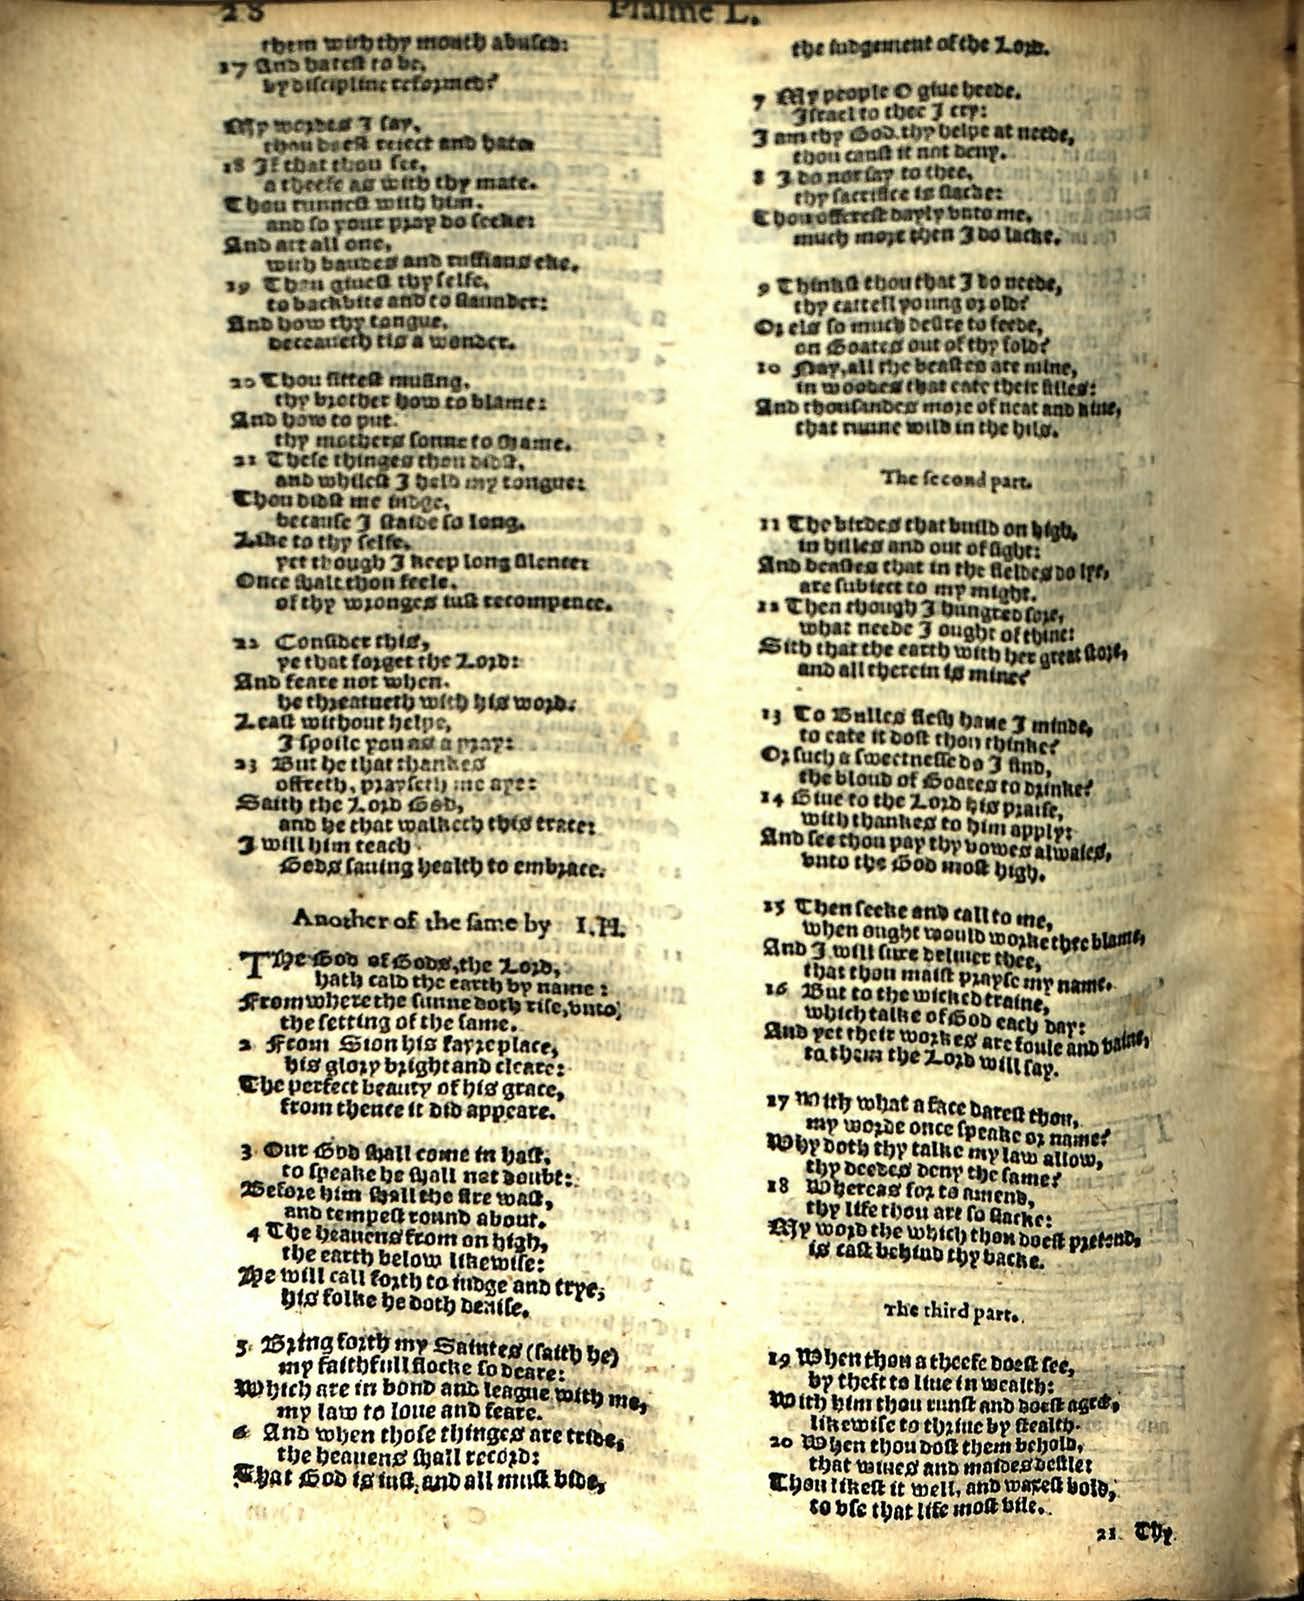 28 Psalme L.
them with thy mouth abused:
17 And hatest to be,
by discipline reformed?
My wordes I say,
thou doest reiect and hate
18 If that thou see,
a theefe as with thy mate.
Thou runnest with him,
and so your pray do seeke:
And art all one,
with baudes and ruffians eke.
19 Thou giuest thy selfe,
to backbite and to slaunder:
And how thy tongue,
deceaueth tis a wonder.
20 Thou sittest musing,
thy brother how to blame:
And how to put.
thy mothers sonne to shame.
21 These thinges thou didst,
and whilest I held my tongue:
Thou didst me iudge,
because I staide so long.
Like to thy selfe,
yet though I keep long silence:
Once shalt thou feele.
of thy wronges iust recompence.
22 Consider this,
ye that forget the Lord:
And feare not when.
he threatneth with his word.
Least without helpe,
I spoile you as a pray:
23 But he that thankes
offreth, prayseth me aye:
Saith the Lord God,
and he that walketh this trace:
I will him teach
Gods sauing health to embrace.
Another of the same by I.H.
THe God of Gods, the Lord,
hath cald the earth by name:
From where the sunne doth rise, vnto,
the setting of the same.
2 From Sion his fayre place,
his glory bright and cleare:
The perfect beauty of his grace,
from thence it did appeare.
3 Our God shall come in hast,
to speake he shall not doubt:
Before him shall the fire wast,
and tempest round about.
4 The heauens from on high,
the earth below likewise:
He will call forth to iudge and trye,
his folke he doth deuise.
5 Bring forth my Saintes (saith he)
my faithfull flocke so deare:
Which are in bond and league with me,
my law to loue and feare.
6 And when those thinges are tride,
the heauens shall record:
That God is iust, and all must bide,
the iudgement of the Lord.
7 My people O giue heede,
Israel to thee I cry:
I am thy God, thy helpe at neede,
thou canst it not deny.
8 I do not say to thee,
thy sacrifice is slacke:
Thou offerest dayly vnto me,
much more then I do lacke.
9 Thinkst thou that I do neede,
thy cattell young or old?
Or els so much desire to feede,
on Goates out of thy fold?
10 Nay, all the beastes are mine,
in woodes that eate their filles:
And thousandes more of neat and kine,
that runne wild in the hils.
The second part.
11 The birdes that build on high,
in hilles and out of sight:
And beastes that in the fieldes do lye,
are subiect to my might.
12 Then though I hungred sore,
what neede I ought of thine:
Sith that the earth with her great store,
and all therein is mine?
13 To Bulles flesh haue I minde,
to eate it dost thou thinke?
Or such a sweetnesse do I find,
the bloud of Goates to drinke?
14 Giue to the Lord his praise,
with thankes to him apply:
And see thou pay thy vowes alwaies,
vnto the God most high.
15 Then seeke and call to me,
when ought would worke thee blame,
And I will sure deliuer thee,
that thou maist prayse my name.
16 But to the wicked traine,
which talke of God each day:
And yet their workes are foule and vaine,
to them the Lord will say.
17 With what a face darest thou,
my worde once speake or name?
Why doth thy talke my law allow,
thy deedes deny the same?
18 Whereas for to amend,
thy life thou art so slacke:
My word the which thou doest pretend,
is cast behind thy backe.
The third part.
19 When thou a theefe doest see,
by theft to liue in wealth:
With him thou runst and doest agree,
likewise to thriue by stealth.
20 When thou dost them behold,
that wiues and maides defile:
Thou likest it well, and waxest bold,
to vse that life most vile.
21. Thy